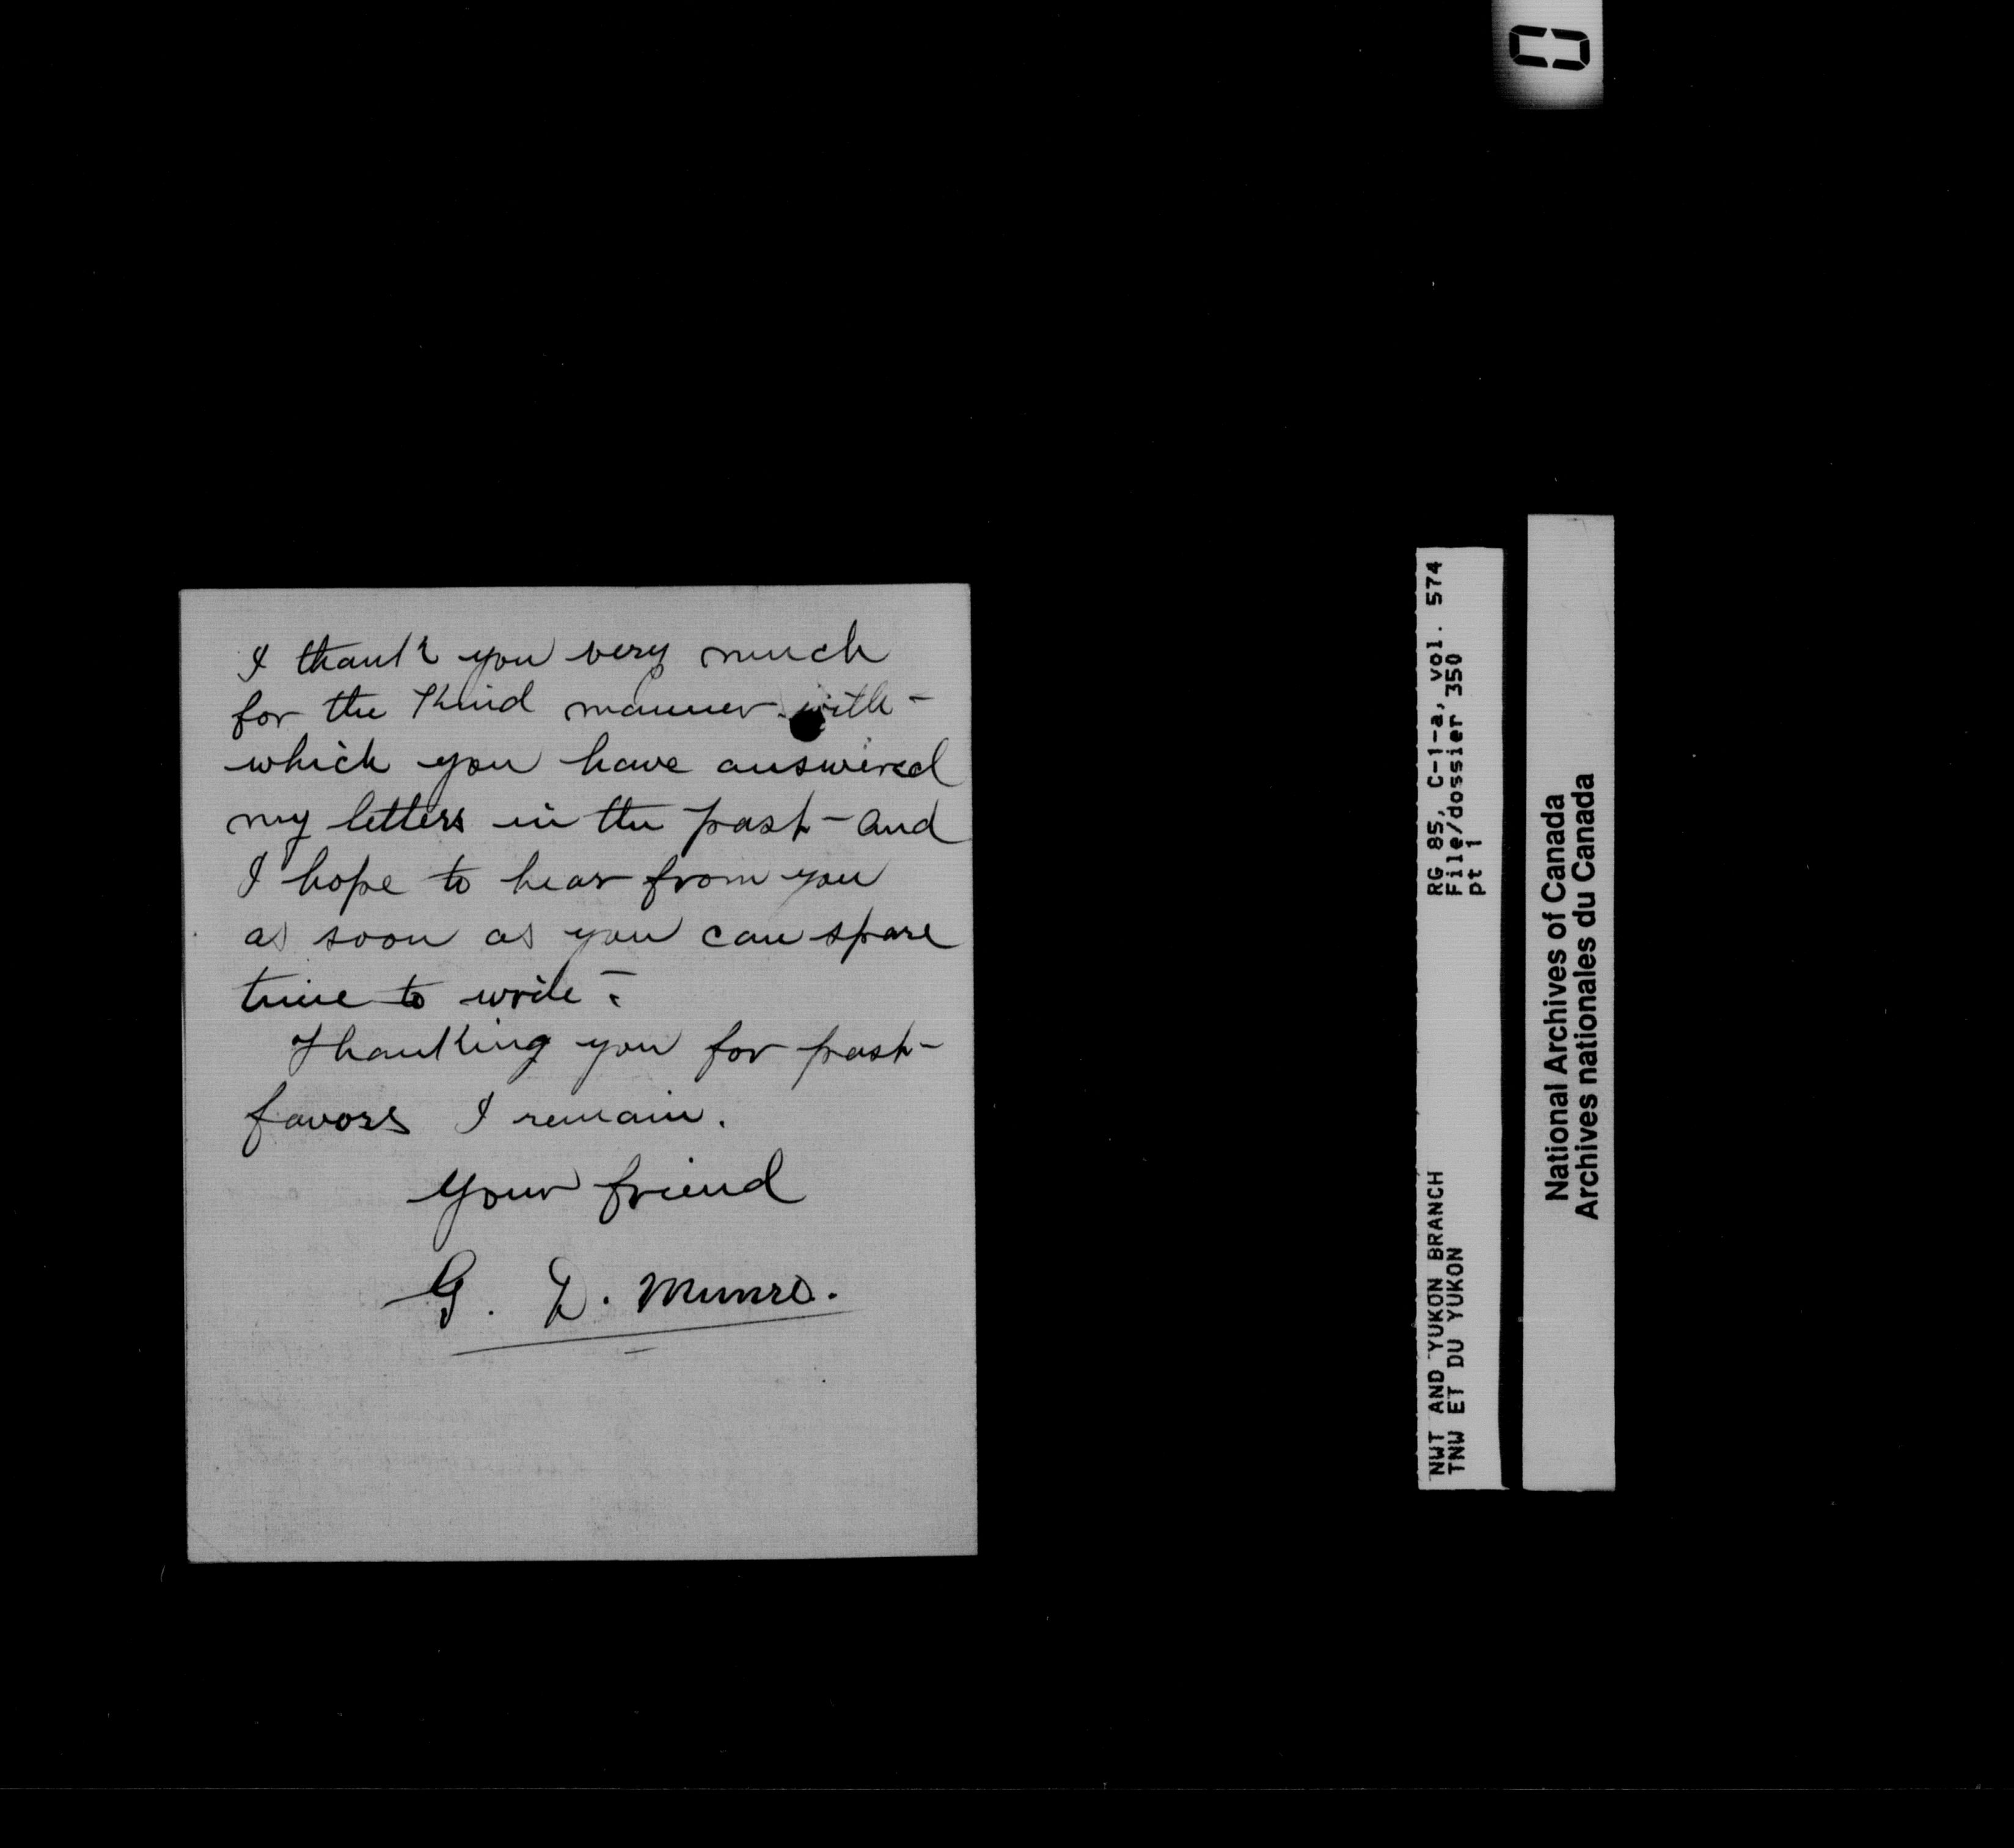 I thank you very much
for the kind manner with -
which you have answered
my letters in the past - and
I hope to hear from you
as soon as you can spare
time to write -
Thanking you for past -
favors I remain.
Your friend
G. D. Munro.
RG 85, C-1-a, vol. 574
File/dossier 350
pt 1
NWT AND YUKON BRANCH
TNW ET DU YUKON
National Archives of Canada
Archives nationales du Canada